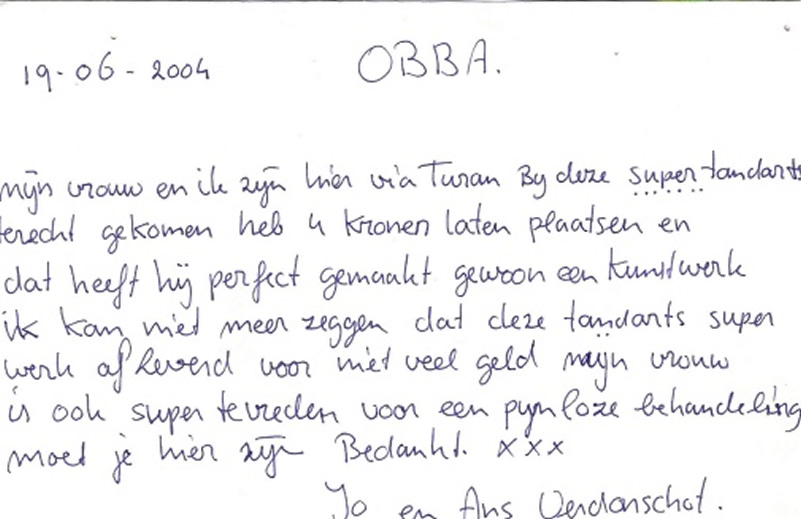 19-06-2004 OBBA.
mijn vrouw en ik zijn hier via Turan By deze super tandarts
terecht gekomen heb 4 kronen laten plaatsen en
dat heeft hij perfect gemaakt gewoon een kunstwerk
ik kan niet meer zeggen dat deze tandarts super
werk afleverd voor niet veel geld mijn vrouw
is ook super tevreden voor een pynloze behandeling
moet je hier zijn Bedankt. xxx
Jo en Ans Verdonschot.